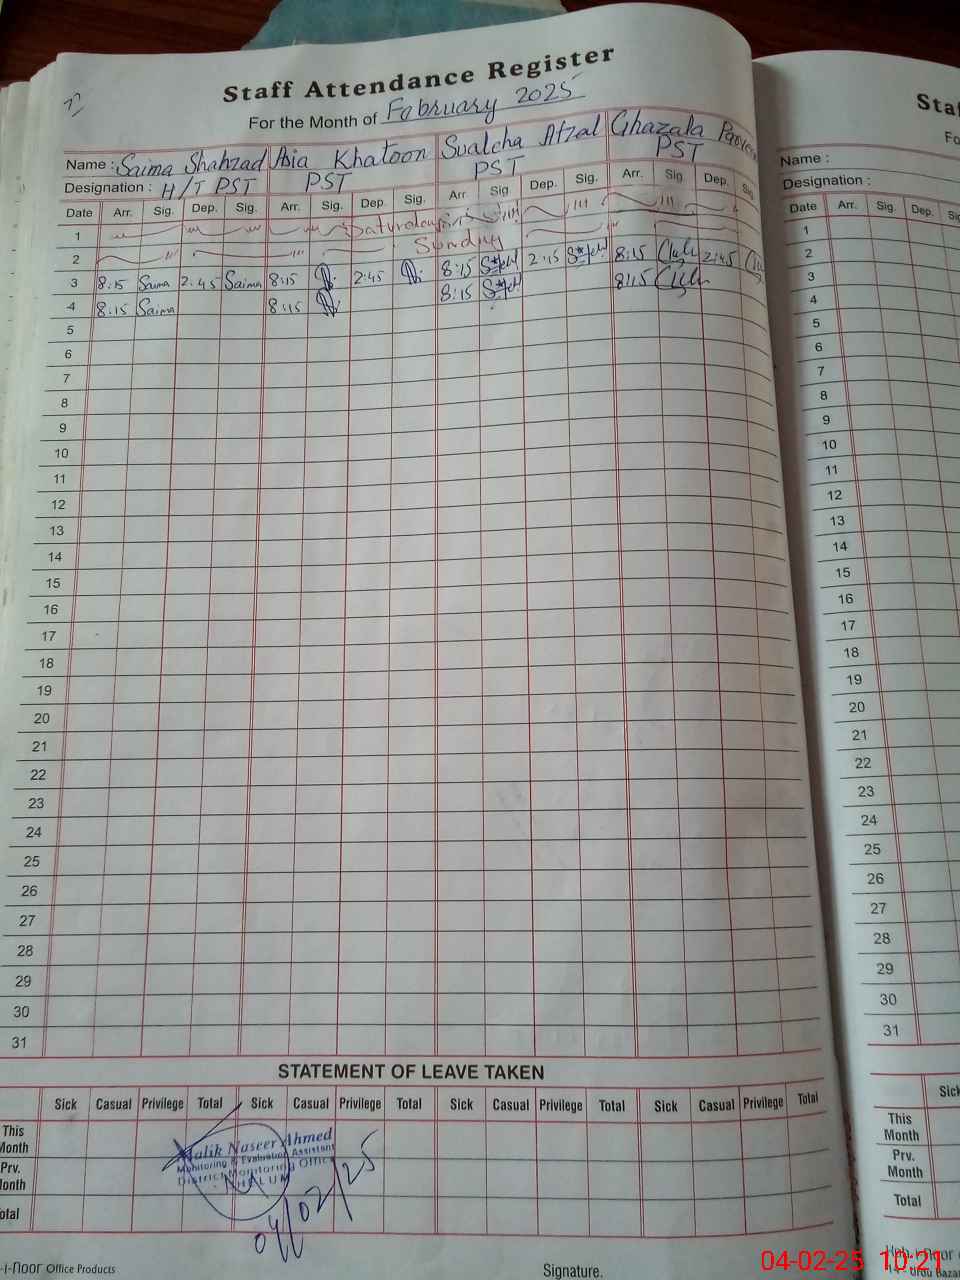 Staff Attendance Register
For the Month of February 2025
Name : Saima Shahzad Asia Khatoon Sualcha Afzal Ghazala Parveen
Designation : H/T PST PST PST PST
Date Arr. Sig. Dep. Sig. Arr. Sig. Dep. Sig. Arr. Sig Dep. Sig. Arr. Sig. Dep. Sig.
1 Saturday
2 Sunday
3 8:15 Saima 2:45 Saima 8:15 2:45 8:15 2:45 8:15 2:45
4 8:15 Saima 8:15 8:15 8:15
5
6
7
8
9
10
11
12
13
14
15
16
17
18
19
20
21
22
23
24
25
26
27
28
29
30
31
STATEMENT OF LEAVE TAKEN
Sick Casual Privilege Total Sick Casual Privilege Total Sick Casual Privilege Total Sick Casual Privilege Total
This Month
Prv. Month
Total
Malik Naseer Ahmed
Monitoring & Evaluation Assistant
District Monitoring Office
JHELUM
04/02/25
-i-Noor Office Products
Signature.
Staf
Fo
Name :
Designation :
Date Arr. Sig. Dep. Sig.
1
2
3
4
5
6
7
8
9
10
11
12
13
14
15
16
17
18
19
20
21
22
23
24
25
26
27
28
29
30
31
Sick
This Month
Prv. Month
Total
-i-noor
Urdu Bazar
04-02-25 10:21